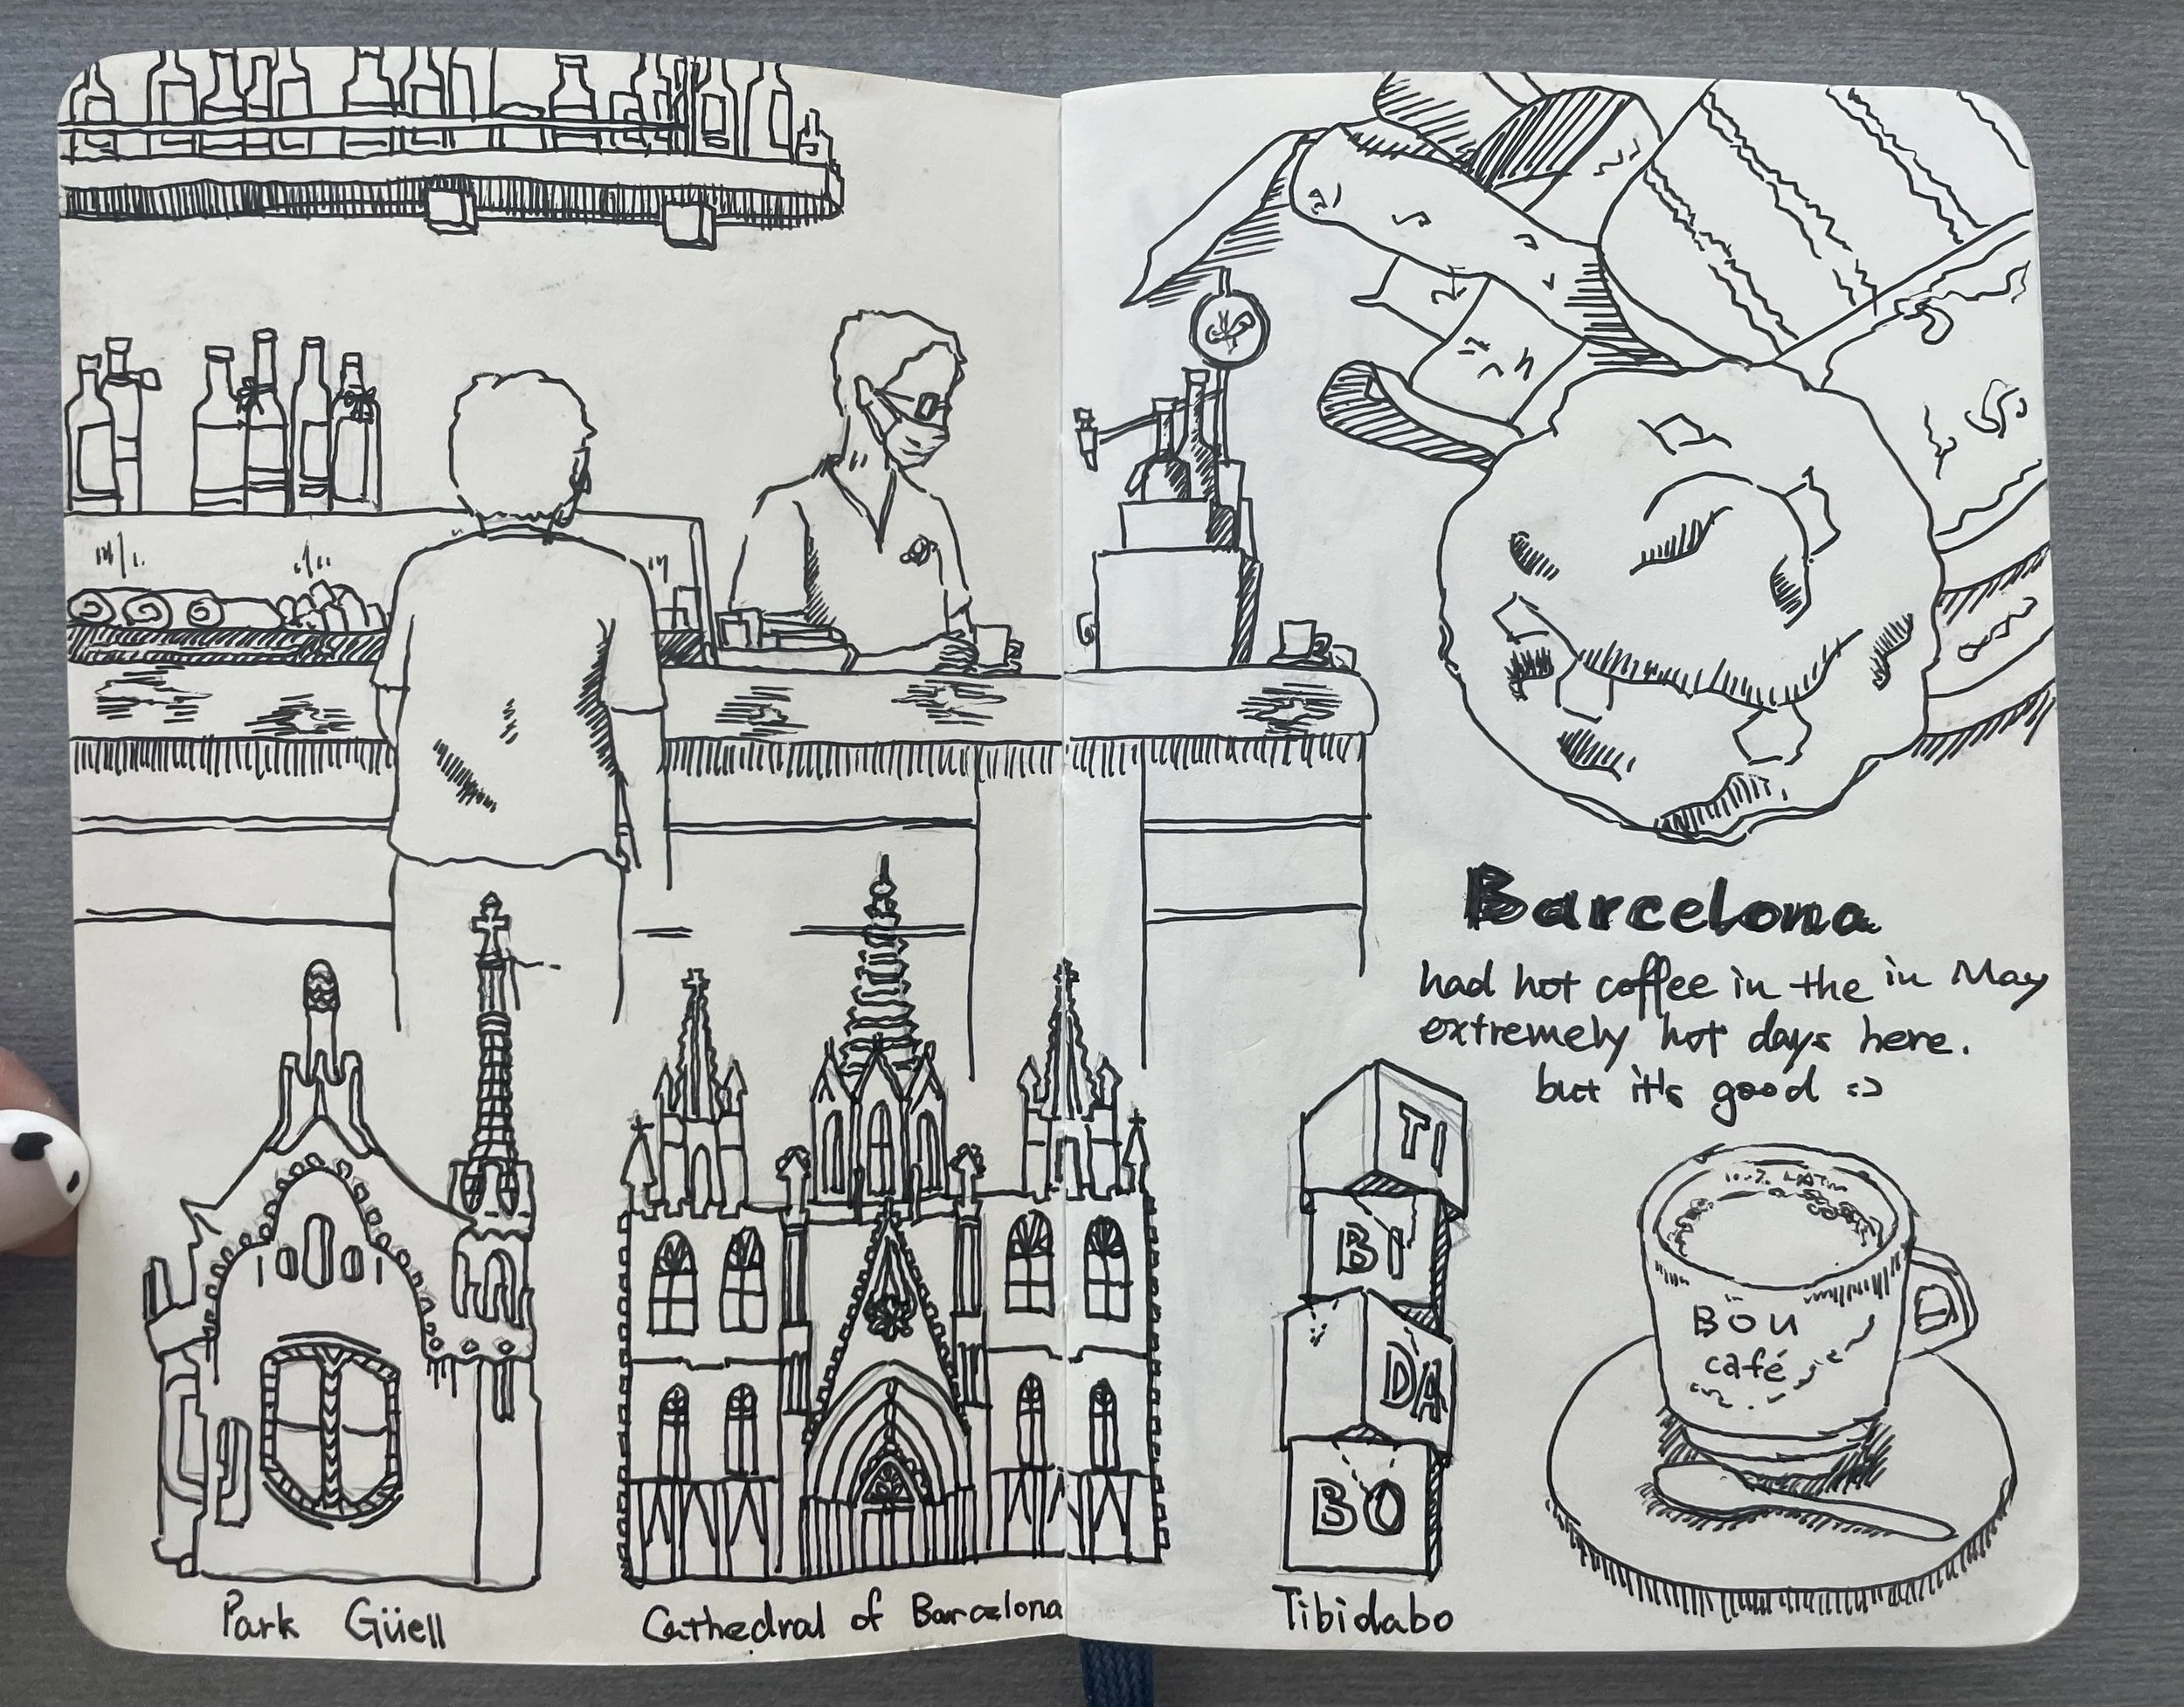 Barcelona
had hot coffee in the in May
extremely hot days here.
but it's good :)
TI
BI
DA
BO
BOU
café
Park Güell
Cathedral of Barcelona
Tibidabo